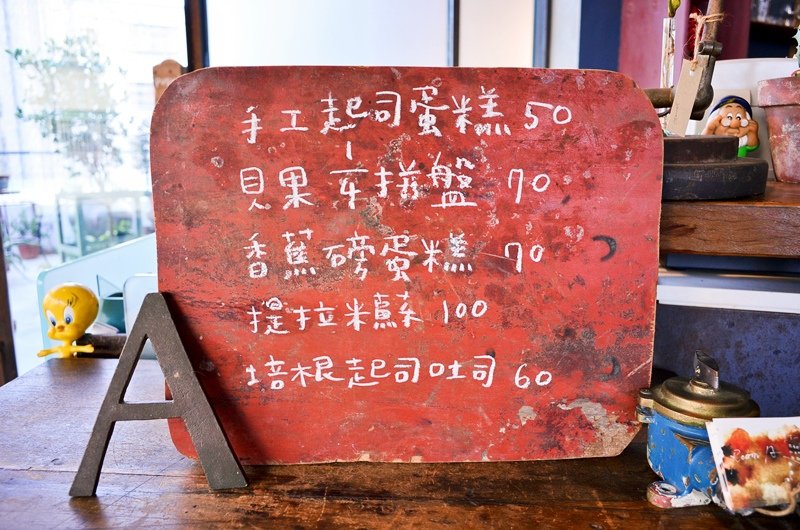 手工起司蛋糕 50
貝果-半拼盤 70
香蕉磅蛋糕 70
提拉米蘇 100
培根起司吐司 60
A